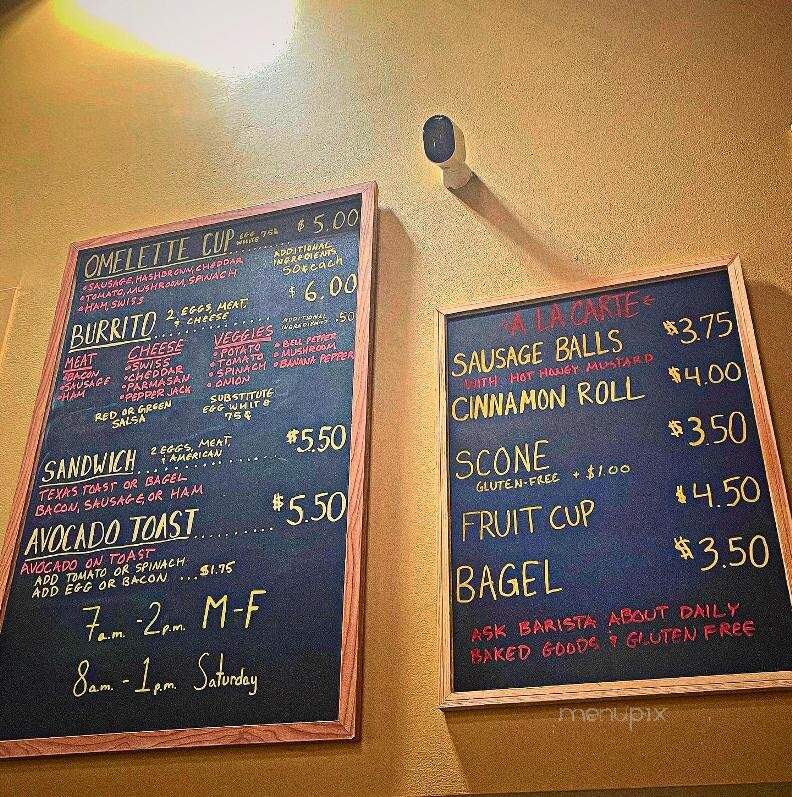 OMELETTE CUP EGG WHITE 75¢ $5.00
• SAUSAGE, HASHBROWN, CHEDDAR
• TOMATO, MUSHROOM, SPINACH
• HAM, SWISS
ADDITIONAL
INGREDIENTS
50¢ each
BURRITO 2 EGGS, MEAT, & CHEESE $6.00
ADDITIONAL
INGREDIENT .50
MEAT
• BACON
• SAUSAGE
• HAM
CHEESE
• SWISS
• CHEDDAR
• PARMASAN
• PEPPER JACK
VEGGIES
• POTATO
• TOMATO
• SPINACH
• ONION
• BELL PEPPER
• MUSHROOM
• BANANA PEPPER
RED OR GREEN
SALSA
SUBSTITUTE
EGG WHITE
75¢
SANDWICH 2 EGGS, MEAT, & AMERICAN $5.50
TEXAS TOAST OR BAGEL
BACON, SAUSAGE, OR HAM
AVOCADO TOAST $5.50
AVOCADO ON TOAST
ADD TOMATO OR SPINACH
ADD EGG OR BACON ...$1.75
7a.m. - 2p.m. M-F
8am. - 1p.m. Saturday
A LA CARTE
SAUSAGE BALLS $3.75
WITH HOT HONEY MUSTARD
CINNAMON ROLL $4.00
SCONE $3.50
GLUTEN-FREE + $1.00
FRUIT CUP $4.50
BAGEL $3.50
ASK BARISTA ABOUT DAILY
BAKED GOODS & GLUTEN FREE
menupix